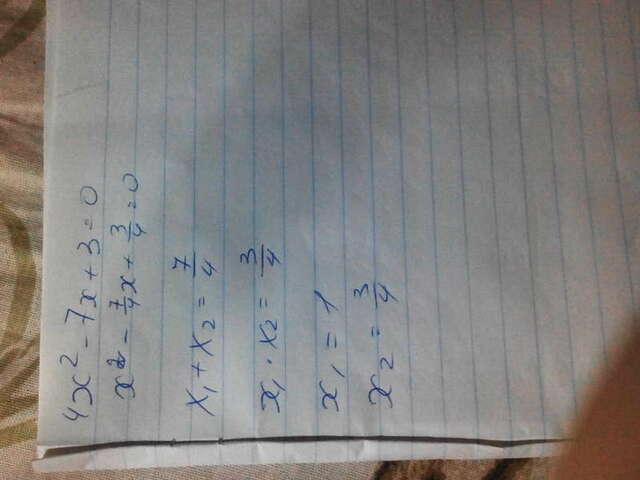 4x² - 7x + 3 = 0
x² - 7/4 x + 3/4 = 0
x₁ + x₂ = 7/4
x₁ · x₂ = 3/4
x₁ = 1
x₂ = 3/4